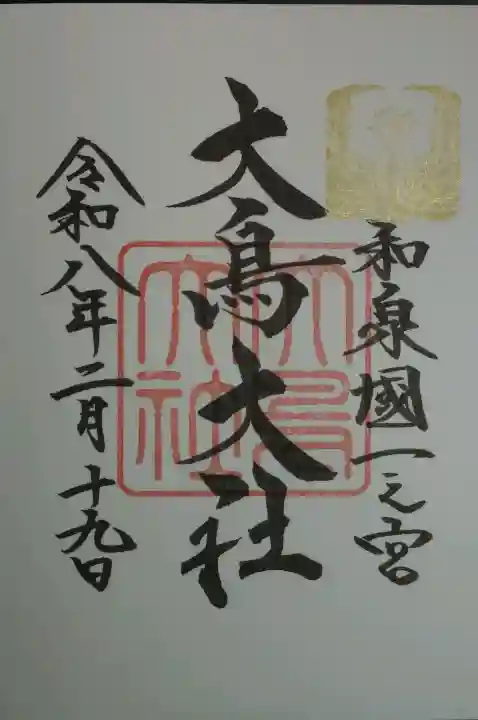 和泉國一之宮
大鳥大社
大鳥大社
令和八年二月十九日